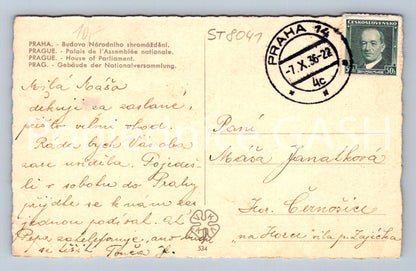 10,
ST8041
PRAHA. - Budova Národního shromáždění.
PRAGUE. - Palais de l'Assemblée nationale.
PRAGUE. - House of Parliament.
PRAG. - Gebäude der Nationalversammlung.
PRAHA 14
-7.X.36-22
4c
ČESKOSLOVENSKO
50h
Milá Mášo
děkuji za zaslané,
přišlo velmi vhod.
Ráda bych Vás oba
zase uviděla. Pojedeš-
li v sobotu do Prahy
přijď se k nám
jednou podívat. Ať
Pepa zatelefonuje, ano
se těší
Paní
Máša Janatková
Černošice
"na Horce" vila p. Zajíčka
534